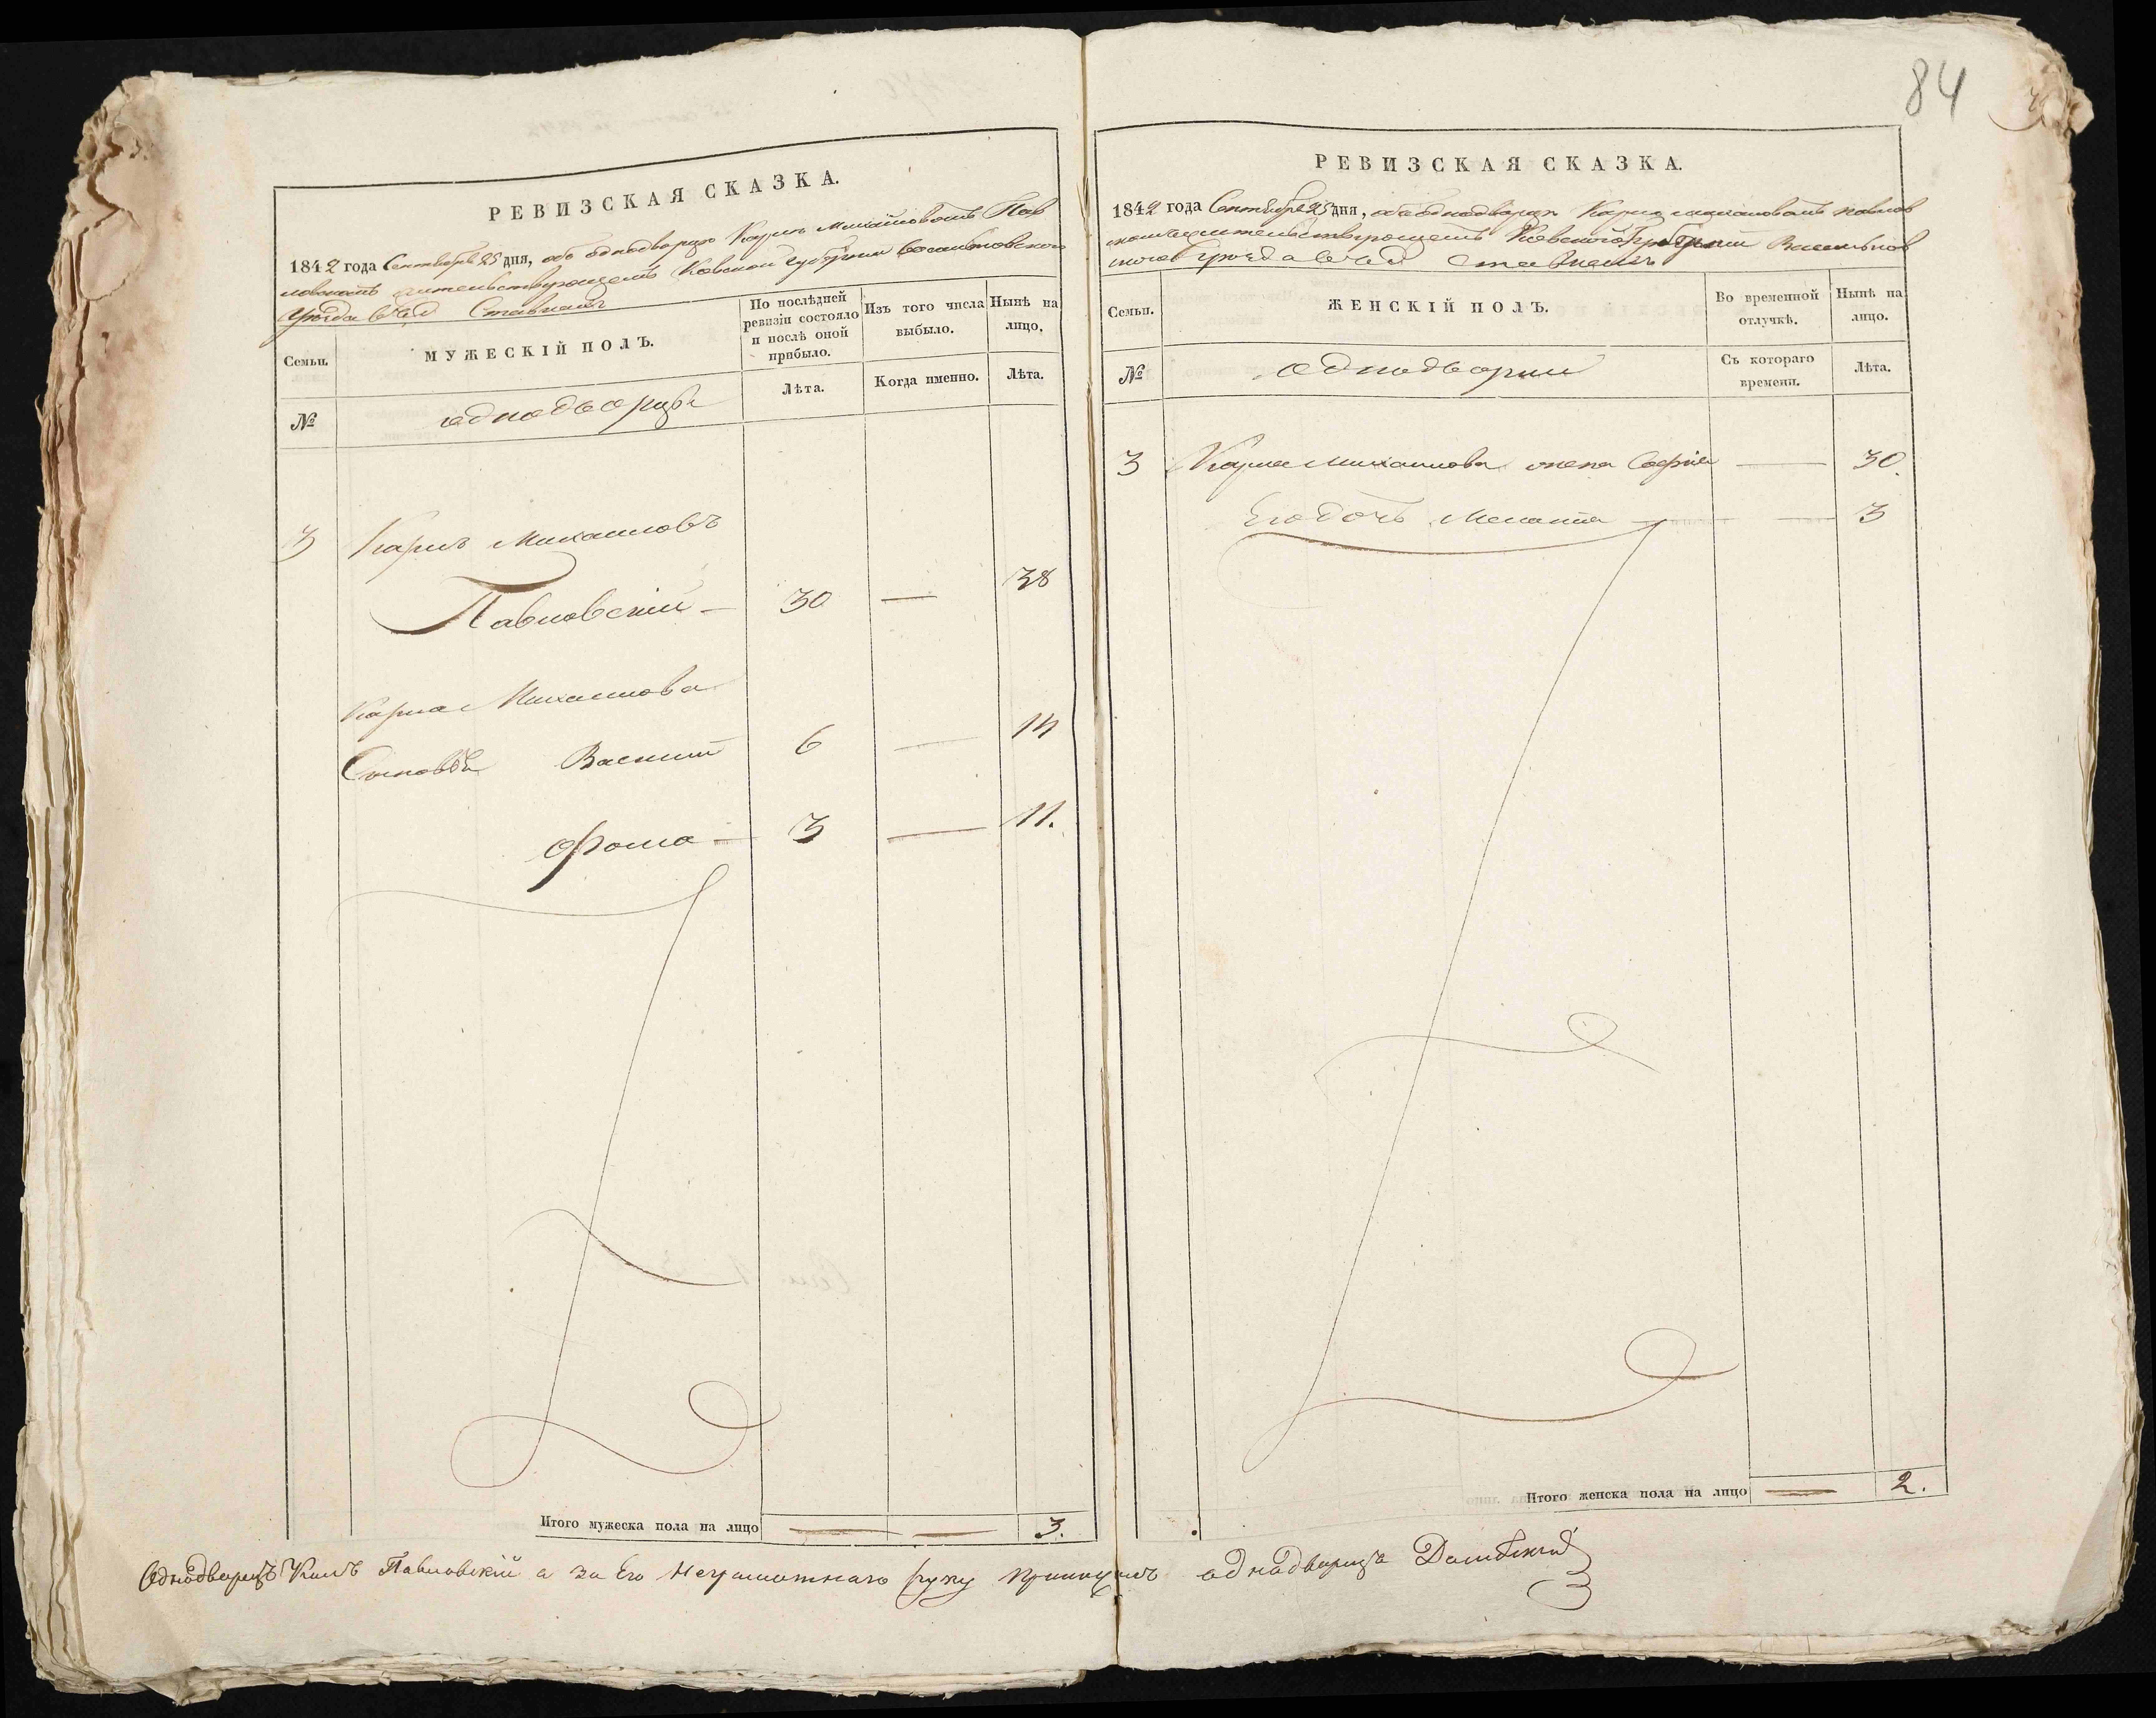 84
РЕВИЗСКАЯ СКАЗКА.
1842 года Сентября 25 дня, объ однодворце Карпе Михайловомъ Пав
ловскомъ жительствующемъ Киевской губернии Васильковского
уезда въ с. Ставкахъ
Семьи.
МУЖЕСКІЙ ПОЛЪ.
По послѣдней ревизіи состояло и послѣ оной прибыло.
Изъ того числа выбыло.
Нынѣ на лицо.
№
однодворцы
Лѣта.
Когда именно.
Лѣта.
3 Карпъ Михаиловъ
Павловскій — 30 — 38
Карпа Михаилова
Сыновья Василий 6 — 14
Фома — 3 — 11.
Итого мужеска пола на лицо — — 3.
РЕВИЗСКАЯ СКАЗКА.
1842 года Сентября 25 дня, объ однодворце Карпе Михаиловомъ Павлов
скомъ жительствующемъ Киевской Губернии Васильков
ского Уезда въ с. Ставкахъ
Семьи.
ЖЕНСКІЙ ПОЛЪ.
Во временной отлучкѣ.
Нынѣ на лицо.
№
однодворки
Съ котораго времени.
Лѣта.
3 Карпа Михаилова жена Софія — 30.
Его дочь — — 3
Итого женска пола на лицо — 2.
Однодворецъ Павловскій а за Его Неграмотнаго руку однодворецъ